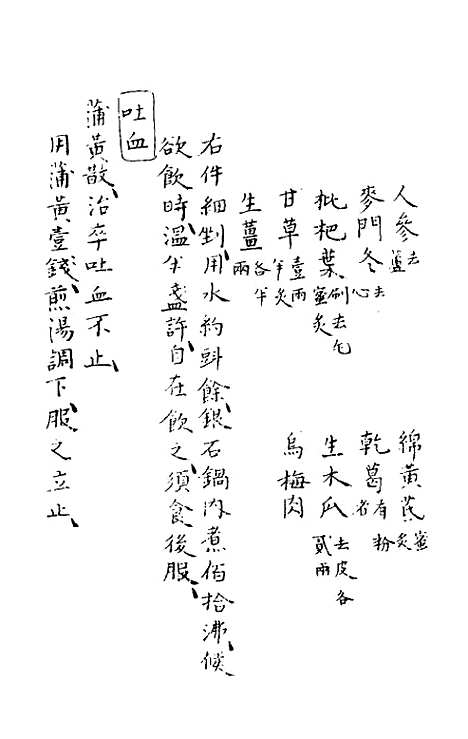 人參去蘆　綿黃芪蜜炙
麥門冬去心　乾葛有粉者
枇杷葉刷去毛蜜炙　生木瓜去皮各貳兩
甘草壹兩半炙　烏梅肉
生薑各半兩
右件細剉、用水約斟餘、銀石鍋內煮佰拾沸、候、
欲飲時、溫半盞許、自在飲之、須食後服、
吐血
蒲黃散、治卒吐血不止、
用蒲黃壹錢、煎湯調下、服之立止、